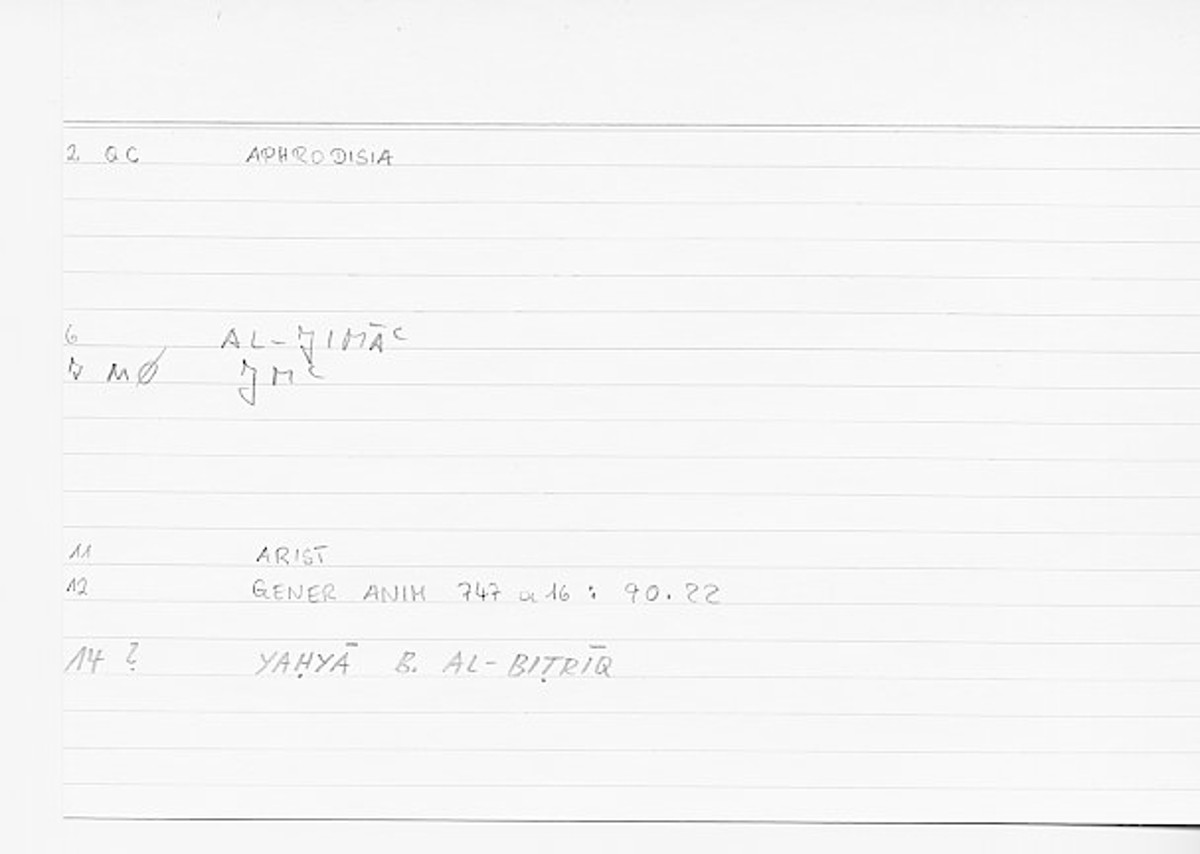 2 QC APHRODISIA
6 AL-JIMĀʿ
7 MØ JMʿ
11 ARIST
12 GENER ANIM 747 a 16 : 90.22
14 ? YAḤYĀ B. AL-BIṬRĪQ